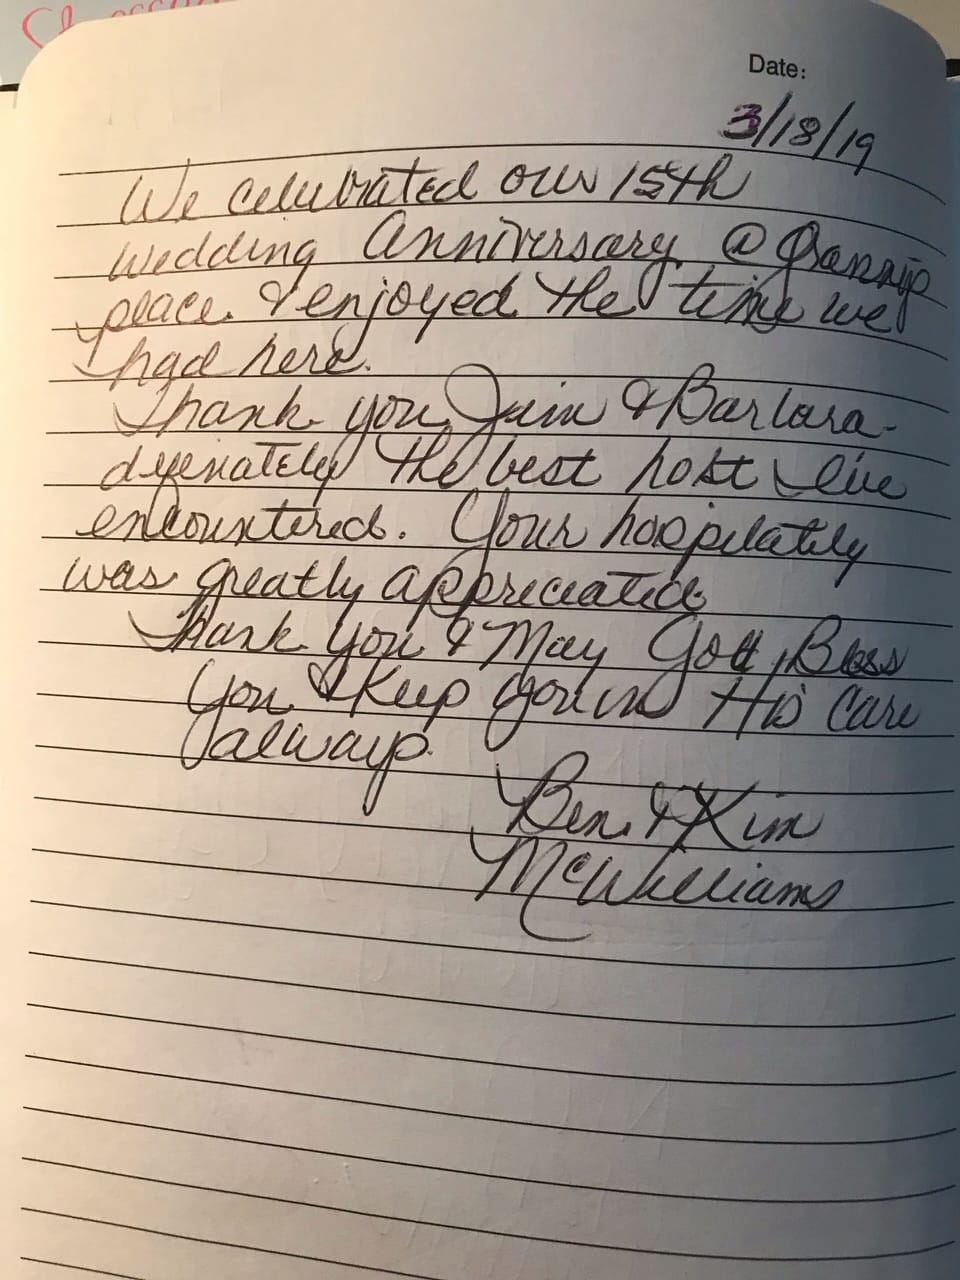 Date:
3/18/19
We celebrated our 15th
wedding anniversary @
place. & enjoyed the time we
had here.
Thank you Jim & Barbara -
the best host I've
encountered. Your hospilatily
was greatly appreciated
Thank You & May God Bless
You & Keep you in His care
always.
Ben & Kim
McWilliams